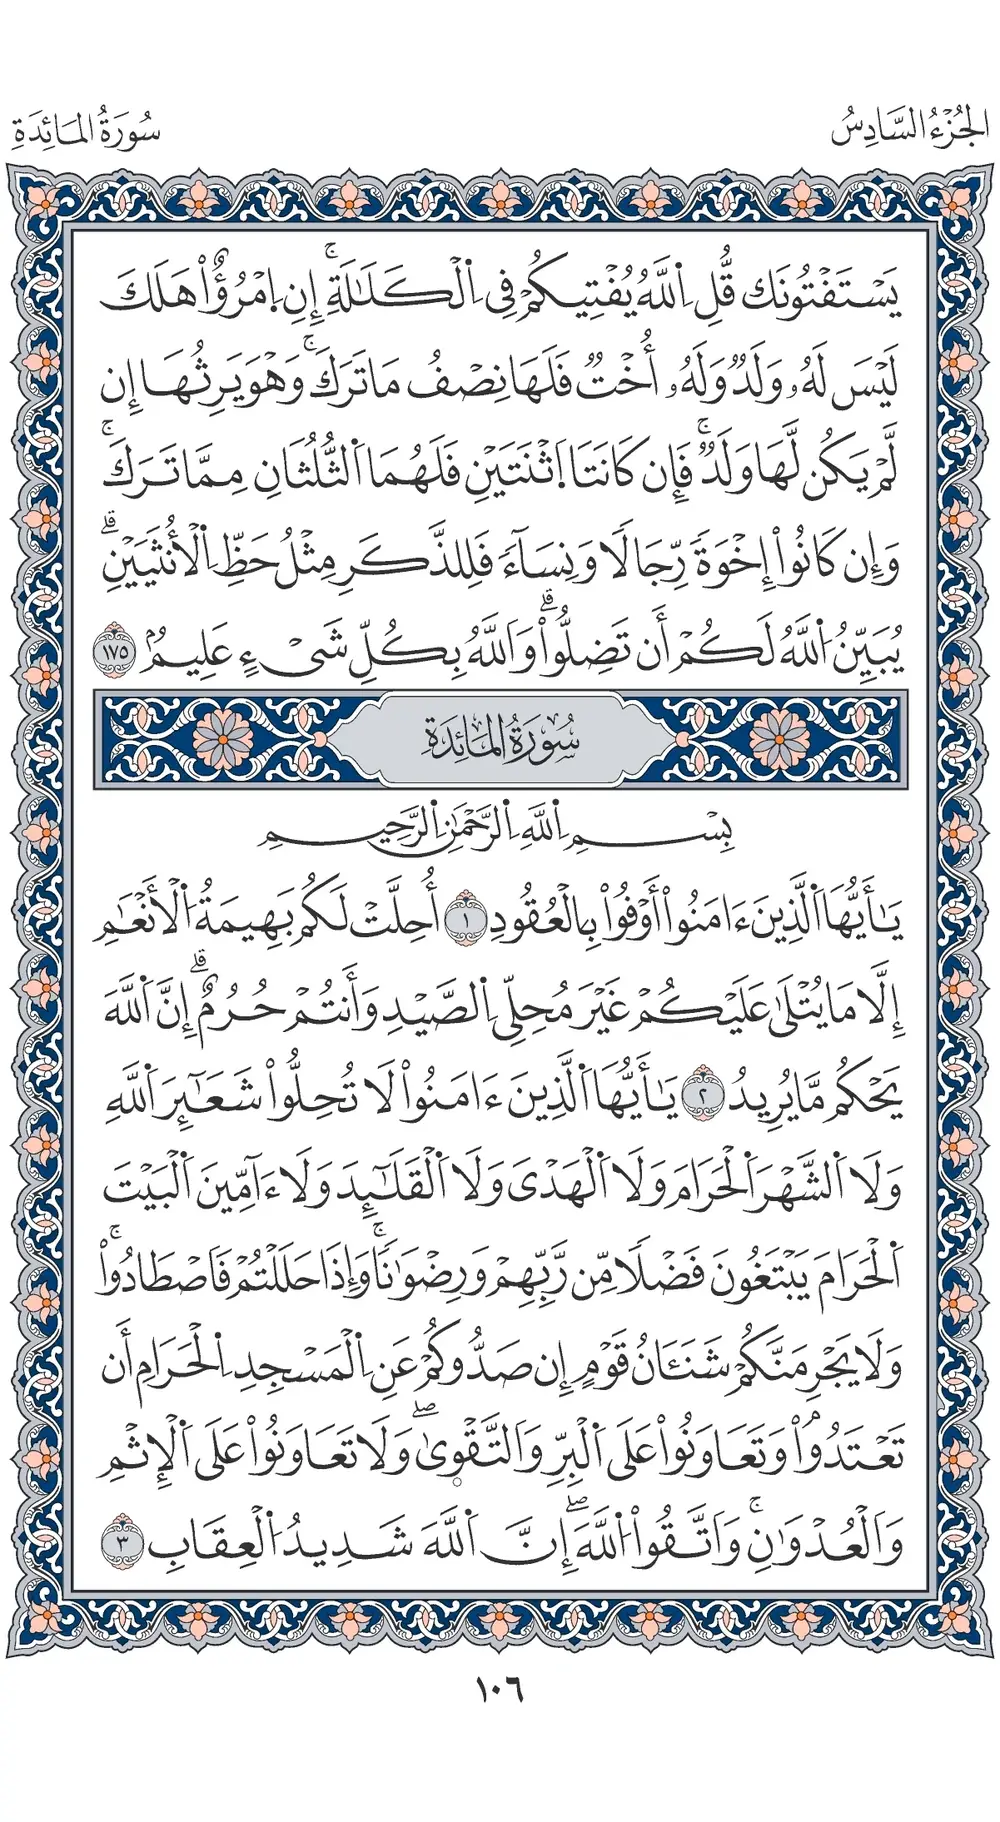 الجُزْءُ السَّادِسُ
سُورَةُ المَائِدَةِ
يَسْتَفْتُونَكَ قُلِ اِ۬للَّهُ يُفْتِيكُمْ فِى اِ۬لْكَلَـٰلَةِۚ إِنِ اِ۪مْرُؤٌاْ هَلَكَ
لَيْسَ لَهُۥ وَلَدٌ وَلَهُۥ أُخْتٌ فَلَهَا نِصْفُ مَا تَرَكَۚ وَهْوَ يَرِثُهَا إِن
لَّمْ يَكُن لَّهَا وَلَدٌۚ فَإِن كَانَتَا اَ۪ثْنَتَيْنِ فَلَهُمَا اَ۬لثُّلُثَانِ مِمَّا تَرَكَۚ
وَإِن كَانُواْ إِخْوَةً رِّجَالًا وَنِسَآءً فَلِلذَّكَرِ مِثْلُ حَظِّ اِ۬لْأُنثَيَيْنِۗ
يُبَيِّنُ اُ۬للَّهُ لَكُمْ أَن تَضِلُّواْۗ وَاَللَّهُ بِكُلِّ شَىْءٍ عَلِيمٌۢ ١٧٥
سُورَةُ المَائِدَةِ
بِسْمِ اِ۬للَّهِ اِ۬لرَّحْمَـٰنِ اِ۬لرَّحِيمِ
يَـٰٓأَيُّهَا اَ۬لَّذِينَ ءَامَنُواْ أَوْفُواْ بِالْعُقُودِ ١ أُحِلَّتْ لَكُم بَهِيمَةُ اُ۬لْأَنْعَـٰمِ
إِلَّا مَا يُتْلَىٰ عَلَيْكُمْ غَيْرَ مُحِلِّى اِ۬لصَّيْدِ وَأَنتُمْ حُرُمٌۗ إِنَّ اَ۬للَّهَ
يَحْكُمُ مَّا يُرِيدُ ٢ يَـٰٓأَيُّهَا اَ۬لَّذِينَ ءَامَنُواْ لَا تُحِلُّواْ شَعَـٰٓئِرَ اَ۬للَّهِ
وَلَا اَ۬لشَّهْرَ اَ۬لْحَرَامَ وَلَا اَ۬لْهَدْىَ وَلَا اَ۬لْقَلَـٰٓئِدَ وَلَا ءَآمِّينَ اَ۬لْبَيْتَ
اَ۬لْحَرَامَ يَبْتَغُونَ فَضْلًا مِّن رَّبِّهِمْ وَرِضْوَٰنًاۚ وَإِذَا حَلَلْتُمْ فَاصْطَادُواْۚ
وَلَا يَجْرِمَنَّكُمْ شَنَـَٔانُ قَوْمٍ إِن صَدُّوكُمْ عَنِ اِ۬لْمَسْجِدِ اِ۬لْحَرَامِ أَن
تَعْتَدُواْۘ وَتَعَاوَنُواْ عَلَى اَ۬لْبِرِّ وَالتَّقْوٜىٰۖ وَلَا تَعَاوَنُواْ عَلَى اَ۬لْإِثْمِ
وَالْعُدْوَٰنِۚ وَاتَّقُواْ اُ۬للَّهَۖ إِنَّ اَ۬للَّهَ شَدِيدُ اُ۬لْعِقَابِ ٣
١٠٦